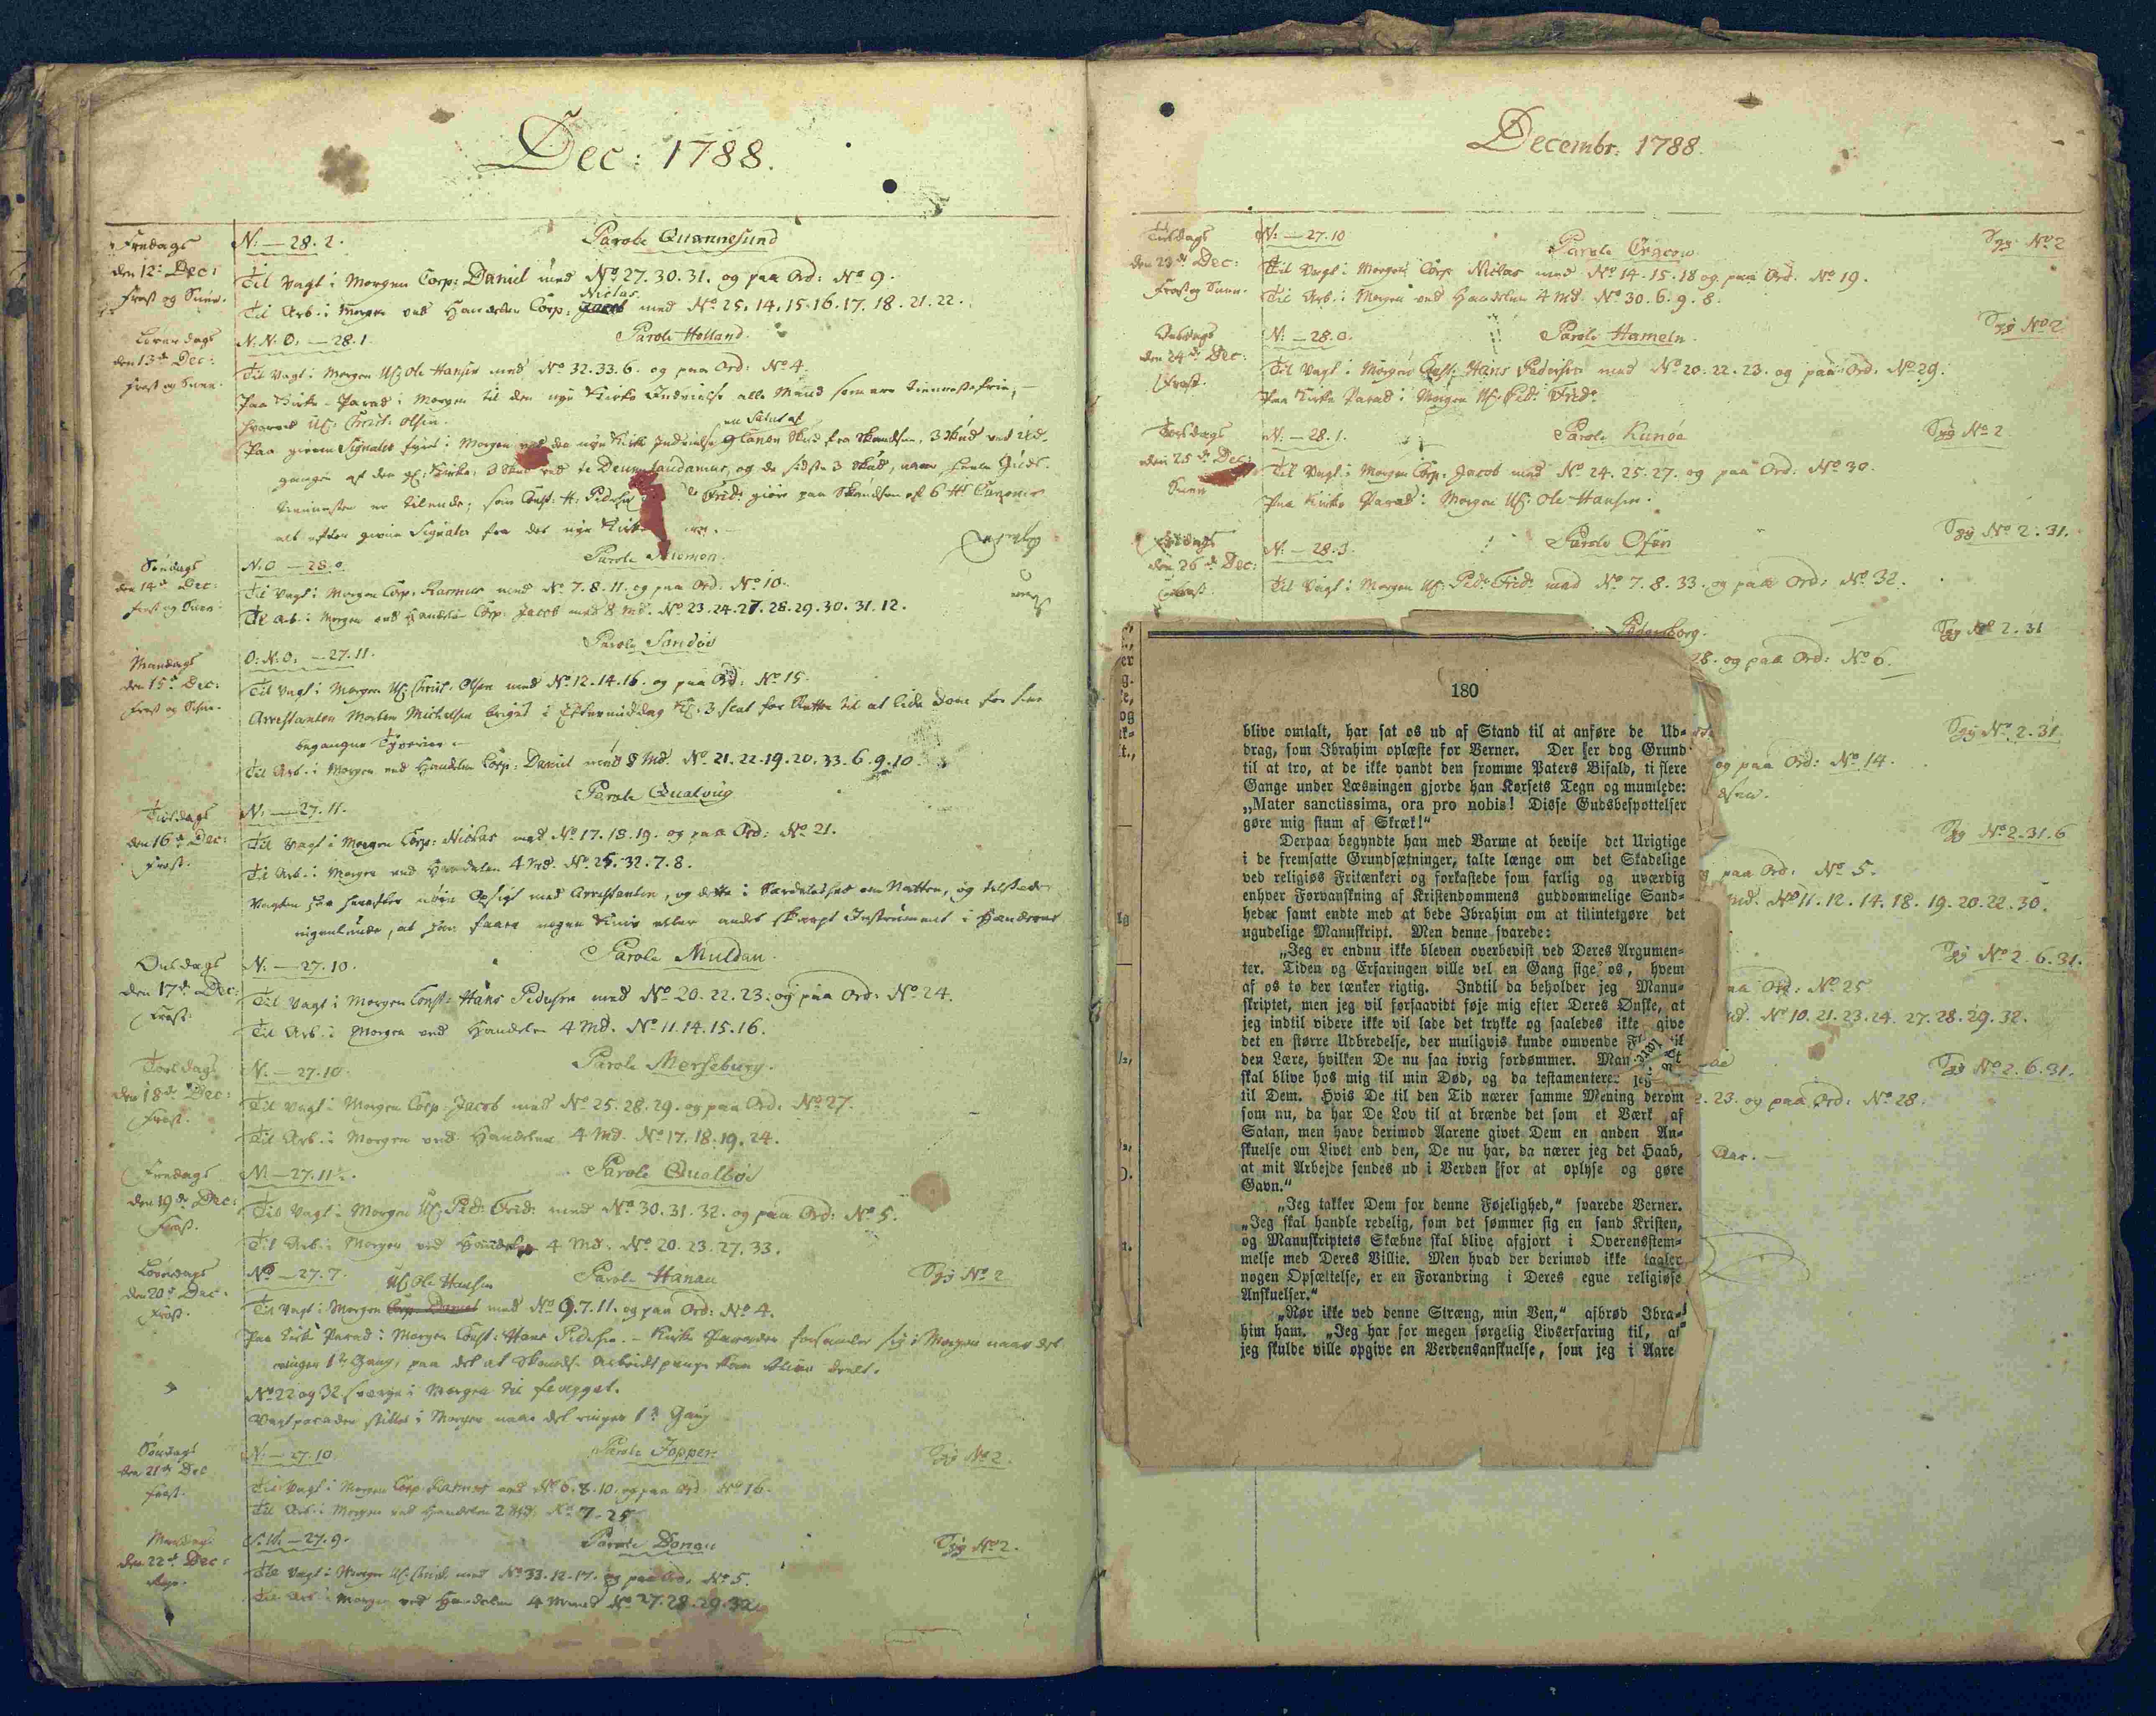 Dec: 1788.
Fredags
den 12t Dec:
Frost og Snee.
N: — 28. 2.
Parole Quannesund
Til Vagt i Morgen Corp: Daniel med No 27. 30. 31. og paa Ord: No 9.
Niclas
Til Arb. i Morgen ved Handelen Corp: Jacob med No 25. 14. 15. 16. 17. 18. 21. 22.
Löverdags
den 13de Dec:
Frost og Snee.
N. N. O. — 28. 1.
Parole Holland.
Til Vagt i Morgen UC: Ole Hansen med No 32. 33. 6. og paa Ord: No 4.
Paa Kirke-Parad i Morgen til den nye Kirkes Indvielse alle Mand som ere
Christ. Olsen.
Paa givene Signaler i Morgen ved den nye Kirkes Indvielse 9 Canon Skud fra Skandsen, 3 Skud ved Ud-
gangen af den gl: Kirke, 3 Skud ved te Deum laudamus, og de sidste 3 Skud, naar
er tilende; som Const: H: Pedersen Frid: giöre paa Skandsen af 6 Canoner
alt efter givne Signaler fra den nye Kirke
Söndags
den 14de Dec:
Frost og Snee.
N. O — 28. 0.
Parole
Til Vagt i Morgen Corp: Rasmus med No 7. 8. 11. og paa Ord: No 10.
Til Arb. i Morgen ved Handelen Corp: Jacob med 8 Md. No 23. 24. 27. 28. 29. 30. 31. 12.
Mandags
den 15de Dec:
Frost og Snee.
O. N. O. — 27. 11.
Parole Sandöe
Til Vagt i Morgen UC: Christ. Olsen med No 12. 14. 16. og paa Ord: No 15.
Arrestanten Morten Michelsen bringes i Eftermiddag Kl: 3 slat for Retten til at lide Dom for sine
begangne Tyverier.
Til Arb. i Morgen ved Handelen Corp: Daniel med 8 Md. No 21. 22. 19. 20. 33. 6. 9. 10.
Tirsdags
den 16de Dec:
Frost.
N: — 27. 11.
Parole Qualvig
Til Vagt i Morgen Corp: Niclas med No 17. 18. 19. og paa Ord: No 21.
Til Arb. i Morgen ved Handelen 4 Md. No 25. 32. 7. 8.
Vagten nöie Opsigt med Arrestanten, og dette i Særdeleshed om Natten, og tilstæder
ingenlunde, at han faaer nogen Kniv eller andet skarpt Instrument i Hænderne
Onsdags
den 17de Dec:
Frost.
N. — 27. 10.
Parole Muldau.
Til Vagt i Morgen Const: Hans Pedersen med No 20. 22. 23. og paa Ord: No 24.
Til Arb. i Morgen ved Handelen 4 Md. No 11. 14. 15. 16.
Torsdags
den 18de Dec:
Frost.
N. — 27. 10.
Parole Merseburg.
Til Vagt i Morgen Corp: Jacob med No 25. 28. 29. og paa Ord: No 27.
Til Arb. i Morgen ved Handelen 4 Md. No 17. 18. 19. 24.
Fredags
den 19de Dec:
Frost.
N — 27. 11½.
Parole Qualböe
Til Vagt i Morgen UC: Ped: Frid: med No 30. 31. 32. og paa Ord: No 5.
Til Arb. i Morgen ved Handelen 4 Md. No 20. 23. 27. 33.
Löverdags
den 20de Dec:
Frost.
No — 27. 7.
UC: Ole Hansen
Parole Hanau
Syg No 2
Til Vagt i Morgen Corp: Daniel med No 9. 7. 11. og paa Ord: No 4.
Paa Kirke Parad i Morgen Const: Hans Pedersen. — Kirke Paraden forsamler sig i Morgen naar det
ringer 1te Gang, paa det at Skandse Arbeids penge kan blive deelt.
No 22 og 32 i Morgen til
Vagtparaden stilles i Morgen naar det ringer 1te Gang
Söndags
den 21de Dec
Frost.
N. — 27. 10
Parole Jopper.
Syg No 2.
Til Vagt i Morgen Corp: Rasmus med No 6. 8. 10. og paa Ord: No 16.
Til Arb. i Morgen ved Handelen 2 Md. No 7. 25
Mandags
den 22de Dec:
— 27. 9.
Parole Donau
Syg No 2.
Til Vagt i Morgen UC: Christ. med No 33. 12. 17. og paa Ord. No 5.
Til Arb. i Morgen ved Handelen 4 Mand No 27. 28. 29. 32.
Decembr: 1788.
Tirsdags
den 23de Dec:
Frost og Snee.
N: — 27. 10
Parole Cracow
Syg No 2
Til Vagt i Morgen Corp: Niclas med No 14. 15. 18 og paa Ord. No 19.
Til Arb. i Morgen ved Handelen 4 Md. No 30. 6. 9. 8.
Onsdags
den 24de Dec:
Frost.
N: — 28. 0.
Parole Hameln.
Syg No 2
Til Vagt i Morgen Const: Hans Pedersen med No 20. 22. 23. og paa Ord: No 29.
Paa Kirke Parad i Morgen UC: Ped: Frid:
Torsdags
den 25de Dec:
Snee
N. — 28. 1.
Parole Kunöe
Syg No 2
Til Vagt i Morgen Corp: Jacob med No 24. 25. 27. og paa Ord: No 30.
Paa Kirke Parad i Morgen UC: Ole Hansen.
Fredags
den 26de Dec:
Frost.
N: — 28. 3.
Parole Ofen
Syg No 2. 31.
Til Vagt i Morgen UC: Ped: Frid: med No 7. 8. 33. og paa Ord: No 32.
Syg No 2. 31
28. og paa Ord: No 6.
Syg No 2. 31.
og paa Ord: No 14.
Syg No 2. 31. 6
paa Ord: No 5.
Md. No 11. 12. 14. 18. 19. 20. 22. 30.
Syg No 2. 6. 31.
Ord: No 25
No 10. 21. 23. 24. 27. 28. 29. 32.
Syg No 2. 6. 31.
23. og paa Ord: No 28.
Aar. —
180
blive omtalt, har sat os ud af Stand til at anføre de Ud-
drag, som Ibrahim oplæste for Verner. Der er dog Grund
til at tro, at de ikke vandt den fromme Paters Bifald, ti flere
Gange under Læsningen gjorde han Korsets Tegn og mumlede:
„Mater sanctissima, ora pro nobis! Disse Gudsbespottelser
gøre mig stum af Skræk!“
Derpaa begyndte han med Varme at bevise det Urigtige
i de fremsatte Grundsætninger, talte længe om det Skadelige
ved religiøs Fritænkeri og forkastede som farlig og uværdig
enhver Forvanskning af Kristendommens guddommelige Sand-
heder samt endte med at bede Ibrahim om at tilintetgøre det
ugudelige Manuskript. Men denne svarede:
„Jeg er endnu ikke bleven overbevist ved Deres Argumen-
ter. Tiden og Erfaringen ville vel en Gang sige os, hvem
af os to der tænker rigtig. Indtil da beholder jeg Manu-
skriptet, men jeg vil forsaavidt føje mig efter Deres Ønske, at
jeg indtil videre ikke vil lade det trykke og saaledes ikke give
det en større Udbredelse, der muligvis kunde omvende
den Lære, hvilken De nu saa ivrig fordømmer.
skal blive hos mig til min Død, og da testamenterer jeg
til Dem. Hvis De til den Tid nærer samme Mening derom
som nu, da har De Lov til at brænde det som et Værk af
Satan, men have derimod Aarene givet Dem en anden An-
skuelse om Livet end den, De nu har, da nærer jeg det Haab,
at mit Arbejde sendes ud i Verden for at oplyse og gøre
Gavn.“
„Jeg takker Dem for denne Føjelighed,“ svarede Verner.
„Jeg skal handle redelig, som det sømmer sig en sand Kristen,
og Manuskriptets Skæbne skal blive afgjort i Overensstem-
melse med Deres Villie. Men hvad der derimod ikke taaler
nogen Opsættelse, er en Forandring i Deres egne religiøse
Anskuelser.“
„Rør ikke ved denne Stræng, min Ven,“ afbrød Ibra-
him ham. „Jeg har for megen sørgelig Livserfaring til, at
jeg skulde ville opgive en Verdensanskuelse, som jeg i Aare